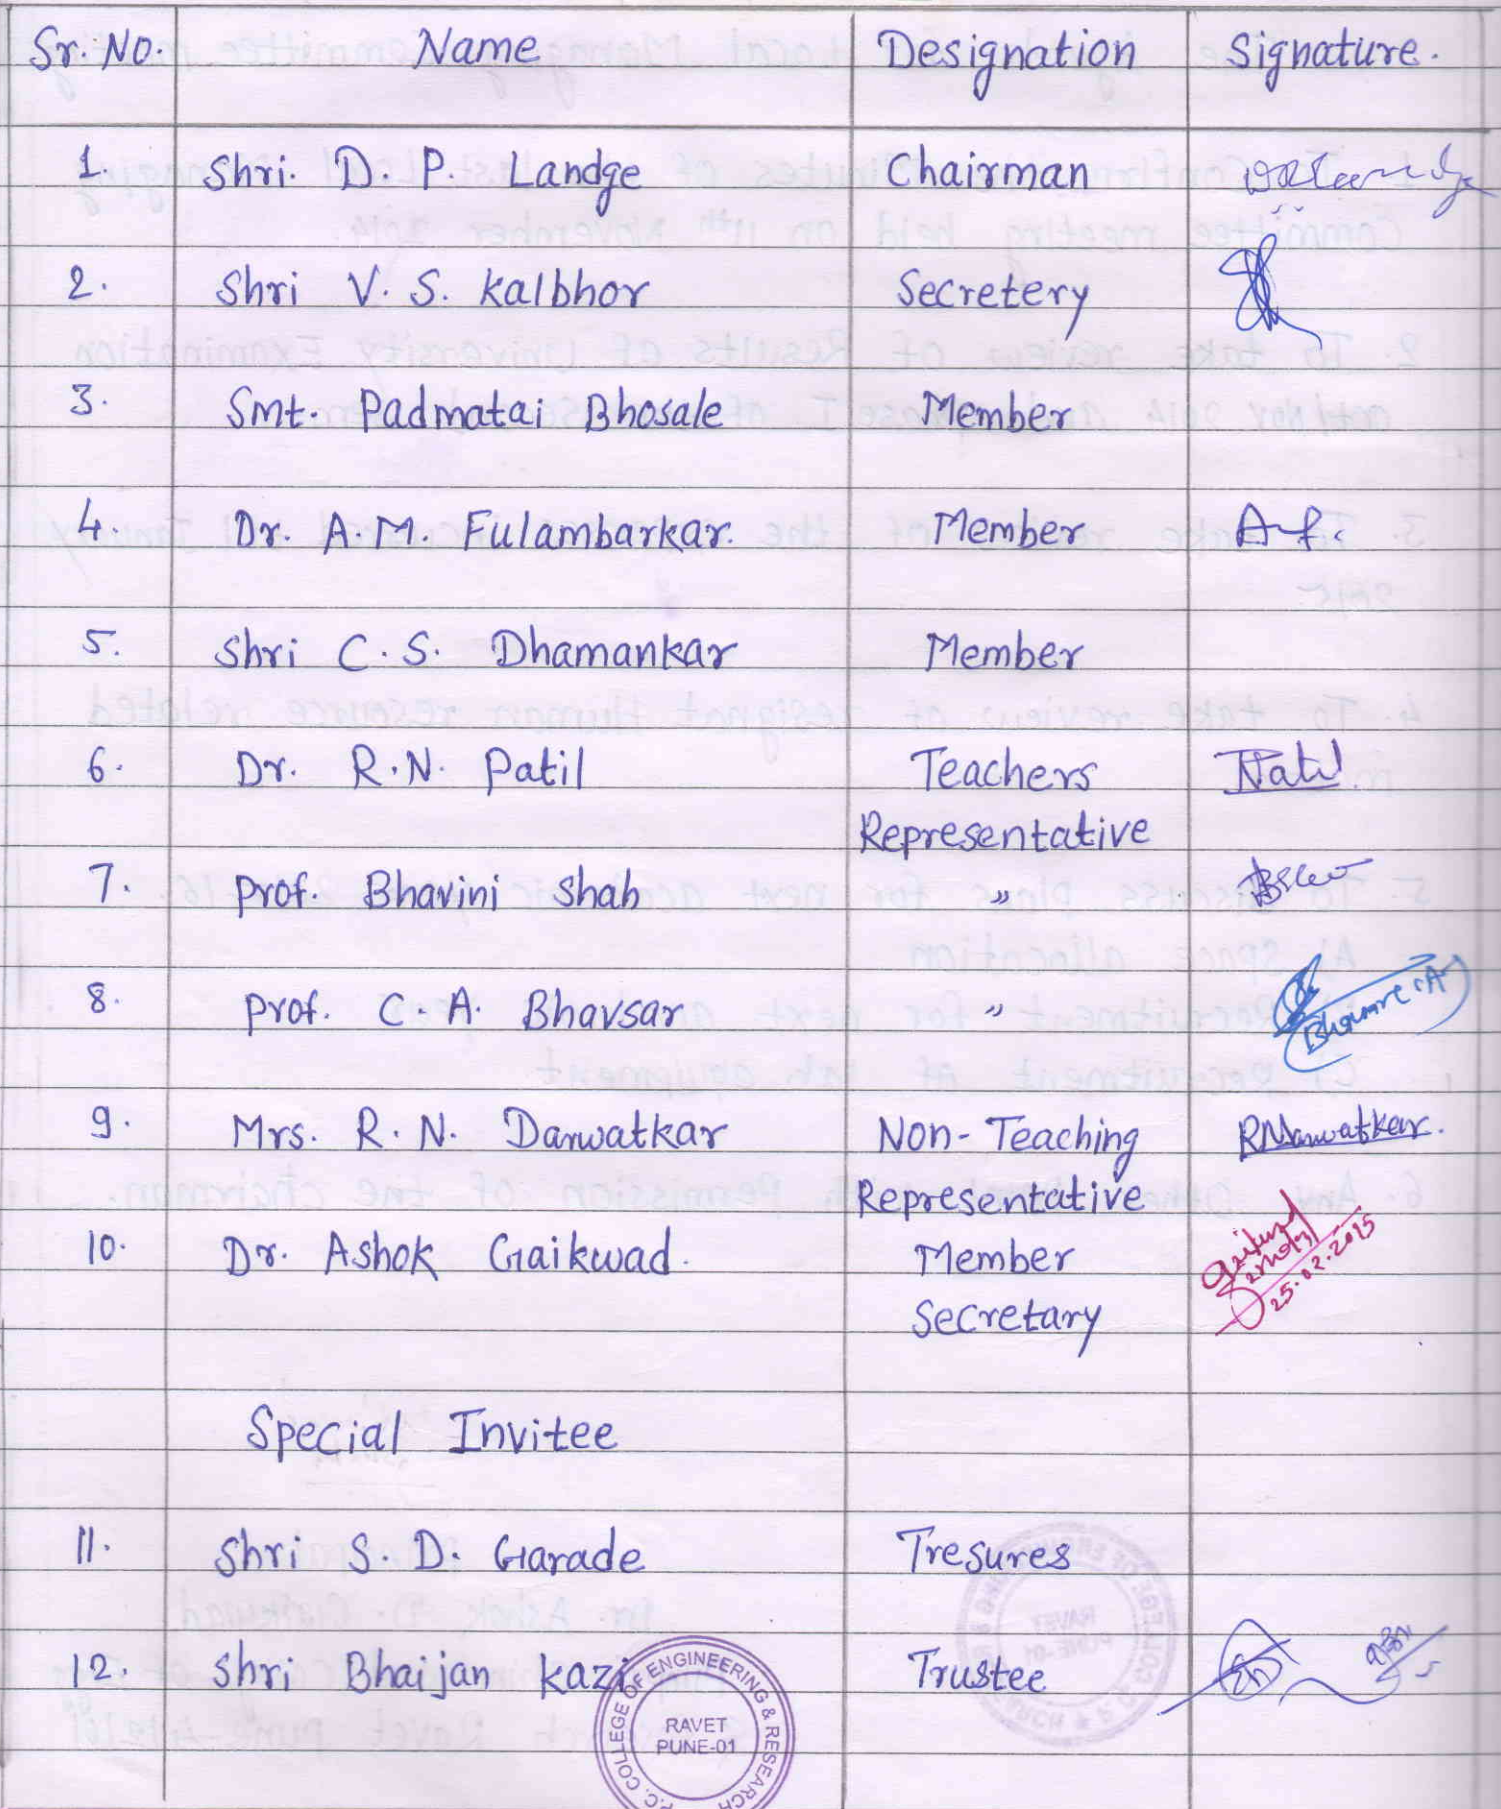 Sr. No. Name Designation Signature.
1. Shri. D. P. Landge Chairman
2. Shri V. S. Kalbhor Secretery
3. Smt. Padmatai Bhosale Member
4. Dr. A.M. Fulambarkar. Member
5. Shri C. S. Dhamankar Member
6. Dr. R.N. Patil Teachers
Representative
7. Prof. Bhavini Shah "
8. Prof. C. A. Bhavsar "
9. Mrs. R. N. Darwatkar Non-Teaching RNDarwatkar.
Representative
10. Dr. Ashok Gaikwad. Member
25.02.2015
Secretary
Special Invitee
11. Shri S. D. Garade Tresures
12. Shri Bhaijan Kazi Trustee
COLLEGE OF ENGINEERING & RESEARCH
RAVET
PUNE-01